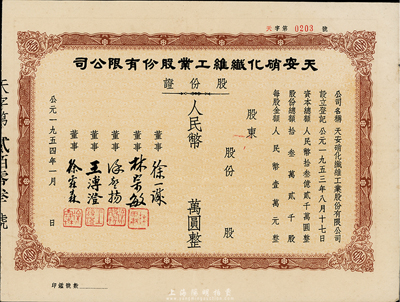 天字第 0203 號
天安硝化纖維工業股份有限公司
股份證
公司名稱 天安硝化纖維工業股份有限公司
設立登記 公元一九五三年八月十七日
資本總額 人民幣拾叁億貳千萬圓整
股份總額 拾叁萬貳千股
每股金額 人民幣壹萬元整
股東
股份 股
人民幣 萬圓整
董事 徐
董事 林榮敏
董事
董事 王溥澄
董事 徐
公元一九五四年一月 日
天字第貳百零叁號
印鑑號數
上海陽明拍賣